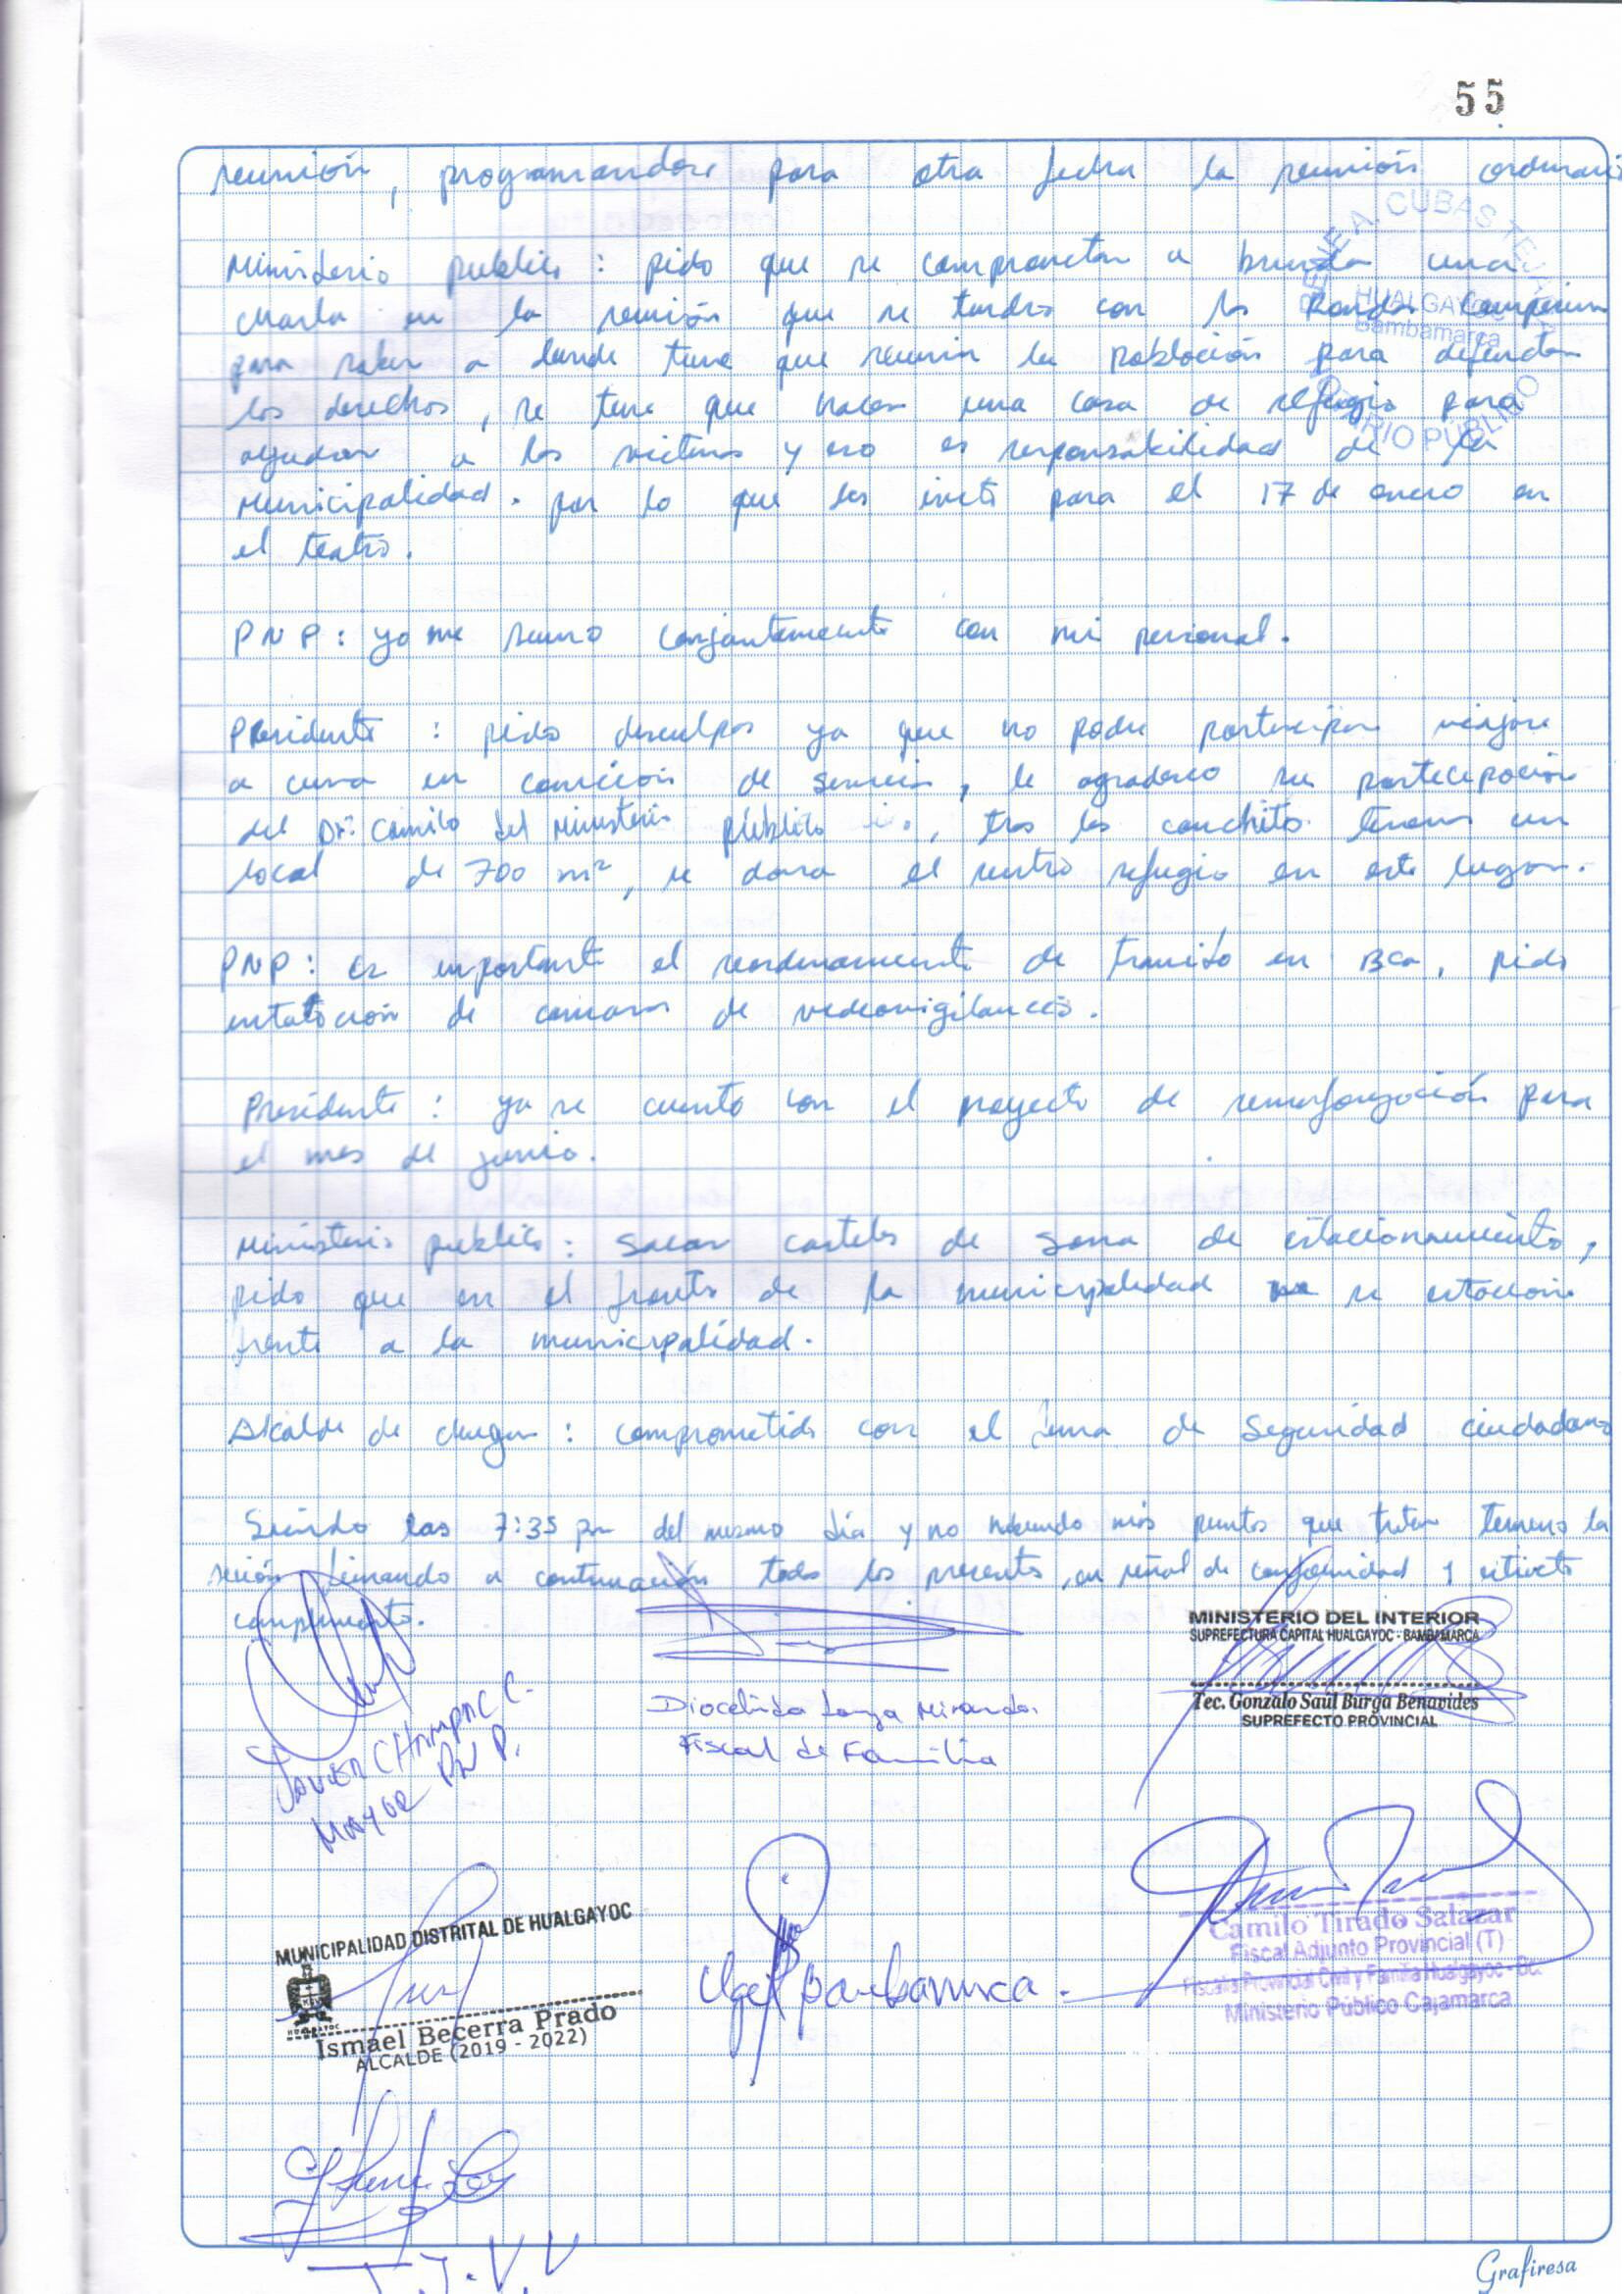 55
reunión, programandose para otra fecha la reunión ordinaria
Ministerio publico: pido que se comprometan a brindar una
charla en la reunión que se tendrá con las Rondas Campesinas
para saber a donde tiene que recurrir la población para defender
los derechos, se tiene que hacer una casa de refugio para
ayudar a las victimas y eso es responsabilidad de la
Municipalidad. por lo que les invito para el 17 de enero en
el teatro.
PNP: yo me sumo conjuntamente con mi personal.
Presidente: pido desculpas ya que no podre participar viajare
a en comicion de servicio, le agradezco su partecipación
del Dr. Camilo del Ministerio público, tras los conchito tenemos un
local de 700 m², se dara el centro refugio en este lugar.
PNP: es importante el reordenamiento de transito en Bca, pido
de camaras de videovigilancia.
Presidente: ya se cuenta con el proyecto de para
el mes de junio.
Ministerio publico: Sacar carteles de sona de estacionamiento,
pido que en el frente de la municipalidad se estacione
frente a la municipalidad.
Alcalde de chugur: comprometido con el tema de Seguridad ciudadana
Siendo las 7:35 pm del mismo día y no habiendo más puntos que tratar la
seción firmando a continuación todos los presentes, en señal de conformidad y estricto
cumplimiento.
DENE A. CUBAS
HUALGAYOC
Bambamarca
NOTARIO PÚBLICO
MINISTERIO DEL INTERIOR
SUPREFECTURA CAPITAL HUALGAYOC - BAMBAMARCA
Tec. Gonzalo Saúl Burga Benavides
SUPREFECTO PROVINCIAL
Miranda
Fiscal de Familia
JAVIER C.
MAYOR PNP.
MUNICIPALIDAD DISTRITAL DE HUALGAYOC
HUALGAYOC
Ismael Becerra Prado
ALCALDE (2019 - 2022)
Ugel Bambamarca.
Camilo Tirado Salazar
Fiscal Adjunto Provincial (T)
Fiscalía Provincial Civil y Familia Hualgayoc - Bca.
Ministerio Público Cajamarca
J.V.V
Grafiresa